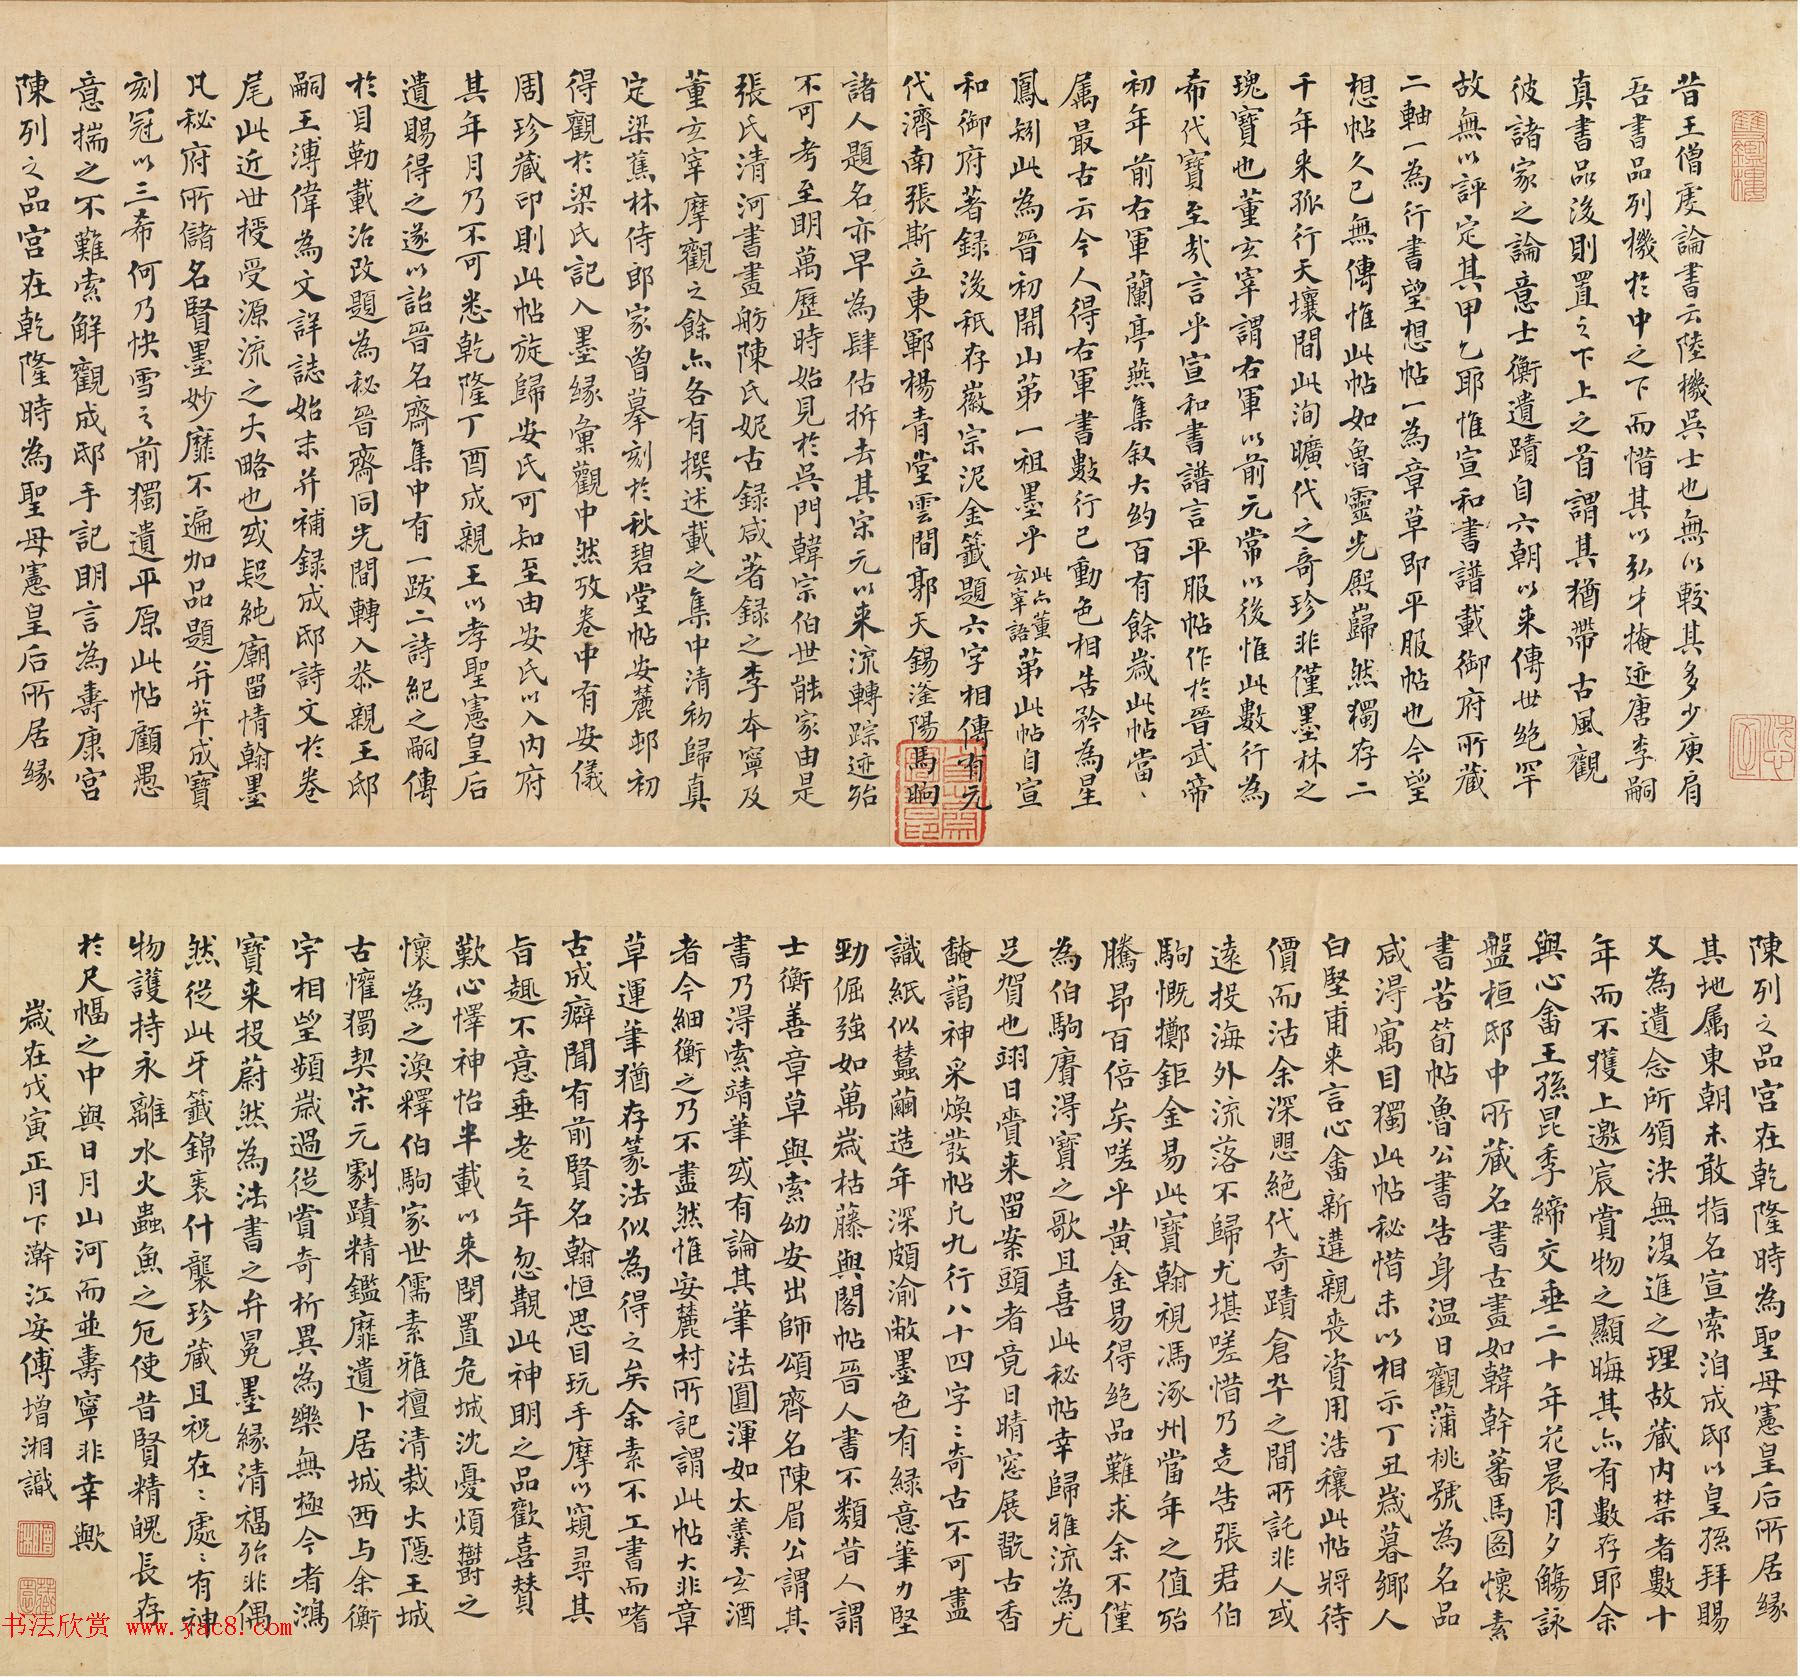 昔王僧虔論書云陸機吳士也無以較其多少庾肩
吾書品列機於中之下而惜其以弘才掩迹唐李嗣
真書品後則置之下上之首謂其猶帶古風觀
彼諸家之論意士衡遺蹟自六朝以来傳世絕罕
故無以評定其甲乙耶惟宣和書譜載御府所藏
二軸一為行書望想帖一為章草即平服帖也今望
想帖久已無傳惟此帖如魯靈光殿巋然獨存二
千年来孤行天壤間此洵曠代之奇珍非僅墨林之
瑰寶也董玄宰謂右軍以前元常以後惟此數行為
希代寶至哉言乎宣和書譜言平服帖作於晉武帝
初年前右軍蘭亭燕集叙大約百有餘歲此帖當〻
属最古云今人得右軍書數行已動色相告矜為星
鳳矧此為晉初開山第一祖墨乎此亦董玄宰語第此帖自宣
和御府著錄後秖存徽宗泥金籤題六字相傳有元
代濟南張斯立東鄆楊青堂雲間郭天錫滏陽馬晌
諸人題名亦早為肆估拆去其宋元以来流轉踪迹殆
不可考至明萬歷時始見於吳門韓宗伯世能家由是
張氏清河書畫舫陳氏妮古錄咸著錄之李本寧及
董玄宰摩觀之餘亦各有撰述載之集中清初歸真
定梁蕉林侍郎家曾摹刻於秋碧堂帖安麓邨初
得觀於梁氏記入墨緣彙觀中然攷卷中有安儀
周珍藏印則此帖旋歸安氏可知至由安氏以入内府
其年月乃不可悉乾隆丁酉成親王以孝聖憲皇后
遺賜得之遂以詒晉名齋集中有一跋二詩紀之嗣傳
於貝勒載治改題為秘晉齋同光間轉入恭親王邸
嗣王溥偉為文詳誌始末并補錄成邸詩文於卷
尾此近世授受源流之大略也或疑純廟留情翰墨
凡秘府所儲名賢墨妙靡不遍加品題并萃成寶
刻冠以三希何乃快雪之前獨遺平原此帖顧愚
意揣之不難索解觀成邸手記明言為壽康宮
陳列之品宮在乾隆時為聖母憲皇后所居緣
陳列之品宮在乾隆時為聖母憲皇后所居緣
其地属東朝未敢指名宣索洎成邸以皇孫拜賜
又為遺念所頒決無復進之理故藏内禁者數十
年而不獲上邀宸賞物之顯晦其亦有數存耶余
與心畬王孫昆季締交垂二十年花晨月夕觴詠
盤桓邸中所藏名書古畫如韓幹蕃馬圖懷素
書苦筍帖魯公書告身溫日觀蒲桃號為名品
咸得寓目獨此帖秘惜未以相示丁丑歲暮鄉人
白堅甫来言心畬新遘親喪資用浩穰此帖將待
價而沽余深思絕代奇蹟倉卒之間所託非人或
遠投海外流落不歸尤堪嗟惜乃走告張君伯
駒慨擲鉅金易此寶翰視馮涿州當年之值殆
騰昂百倍矣嗟乎黃金易得絕品難求余不僅
為伯駒賡得寶之歌且喜此秘帖幸歸雅流為尤
足賀也翊日賚来留案頭者竟日晴窓展翫古香
馣藹神采煥發帖凡九行八十四字〻奇古不可盡
識紙似蠶繭造年深頗渝敝墨色有綠意筆力堅
勁倔強如萬歲枯藤與閣帖晉人書不類昔人謂
士衡善章草與索幼安出師頌齊名陳眉公謂其
書乃得索靖筆或有論其筆法圓渾如太羹玄酒
者今細衡之乃不盡然惟安麓村所記謂此帖大非章
草運筆猶存篆法似為得之矣余素不工書而嗜
古成癖聞有前賢名翰恒思目玩手摩以窺尋其
旨趣不意垂老之年忽覩此神明之品歡喜贊
歎心懌神怡半載以来閉置危城沈憂煩鬱之
懷為之渙釋伯駒家世儒素雅擅清裁大隱王城
古懽獨契宋元劇蹟精鑑靡遺卜居城西与余衡
宇相望頻歲過從賞奇析異為樂無極今者鴻
寶来投蔚然為法書之弁冕墨緣清福殆非偶
然從此牙籤錦裹什襲珍藏且祝在〻處〻有神
物護持永離水火蟲魚之厄使昔賢精魄長存
於尺幅之中與日月山河而並壽寧非幸歟
歲在戊寅正月下澣江安傅增湘識
书法欣赏 www.yac8.com